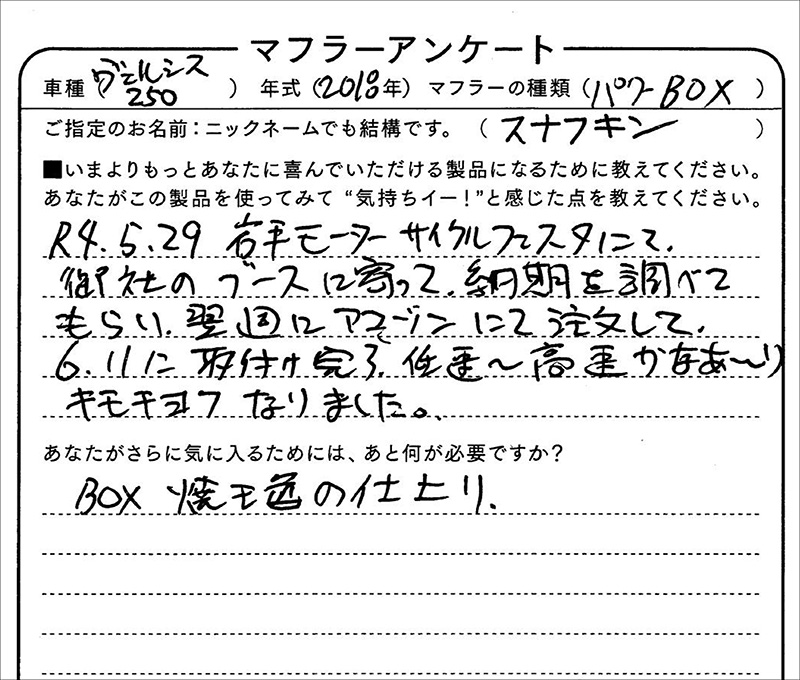 マフラーアンケート
車種（ヴェルシス250） 年式（2018年） マフラーの種類（パワーBOX）
ご指定のお名前：ニックネームでも結構です。（スナフキン）
■いまよりもっとあなたに喜んでいただける製品になるために教えてください。
あなたがこの製品を使ってみて“気持ちイー！”と感じた点を教えてください。
R4.5.29 岩手モーターサイクルフェスタにて、
御社のブースに寄って、納期を調べて
もらい、翌週にアマゾンにて注文して、
6.11に取付け完了、低速〜高速かなあ〜り
キモチヨクなりました。
あなたがさらに気に入るためには、あと何が必要ですか？
BOX 焼け色の仕上り、